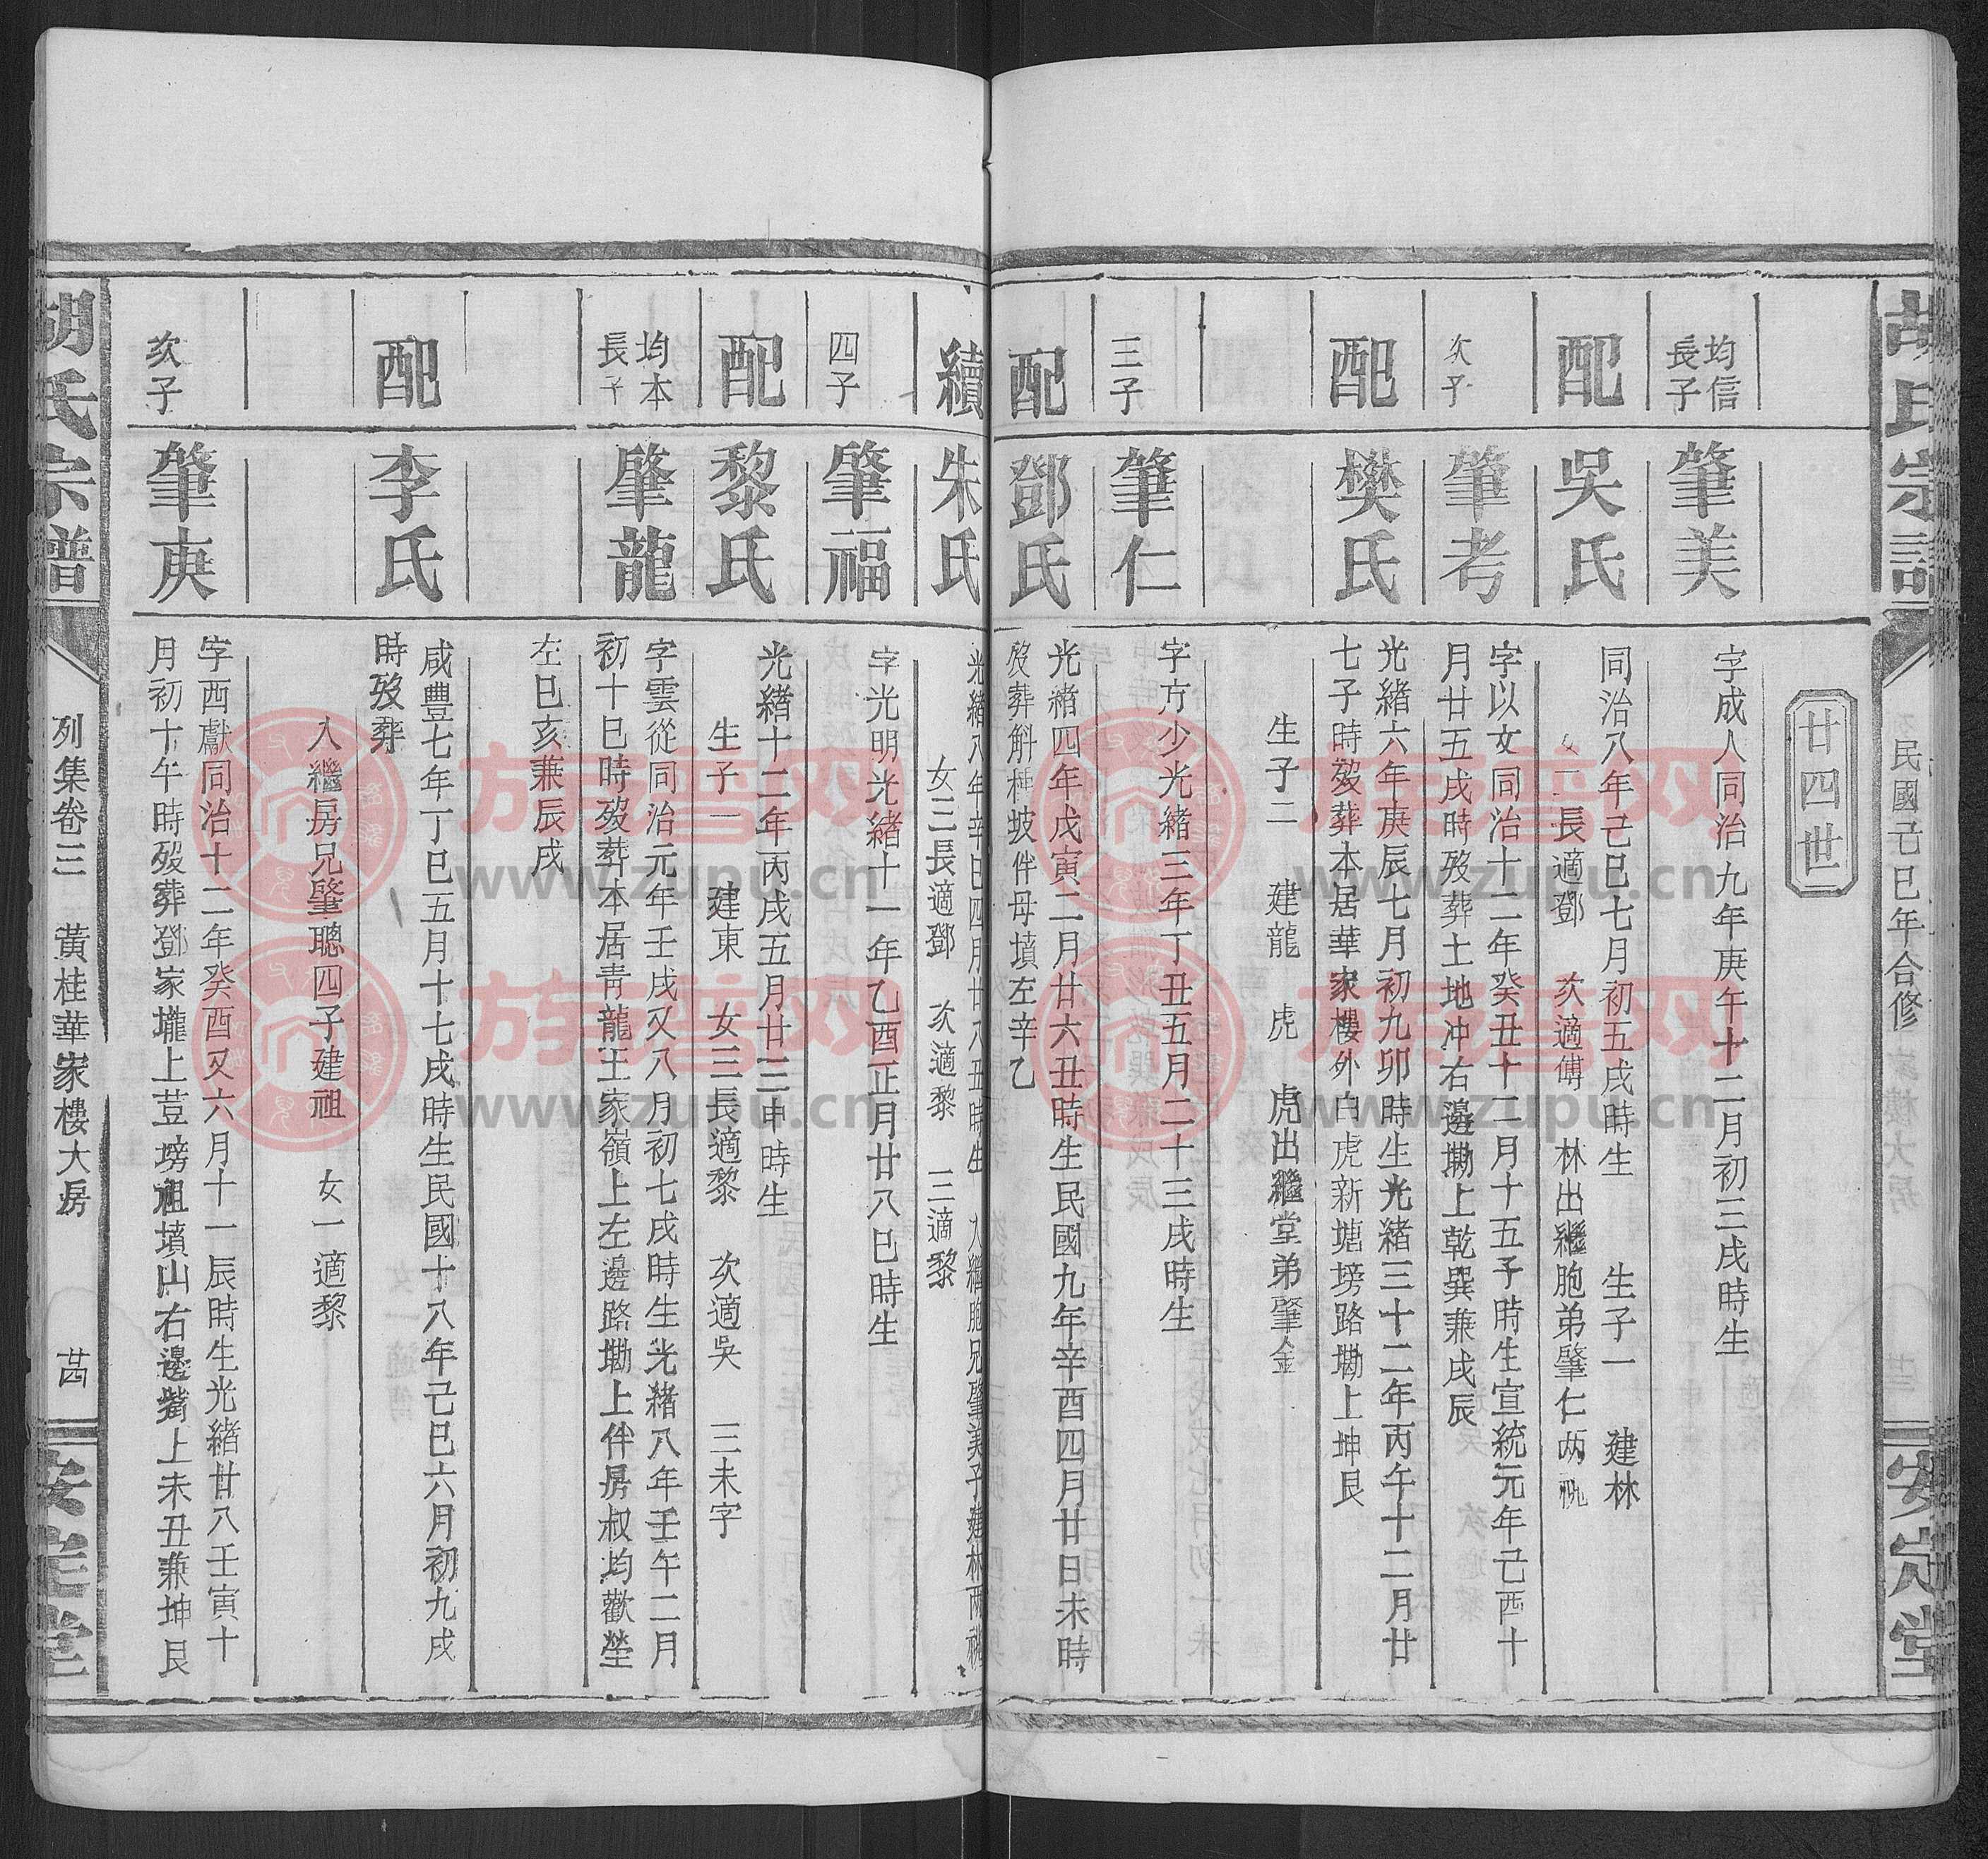 胡氏宗譜
民國己巳年合修
安定堂
廿四世
均信長子
肇美
字成人同治九年庚午十二月初三戌時生
配
吳氏
同治八年己巳七月初五戌時生 生子一 建林
女二長適鄧 次適傅 林出繼胞弟肇仁兩祧
次子
肇考
字以文同治十二年癸丑十二月十五子時生宣統元年己酉十
月廿五戌時歿葬土地冲右邊塝上乾巽兼戌辰
配
樊氏
光緒六年庚辰七月初九卯時生光緒三十二年丙午十二月廿
七子時歿葬本居華家樓外白虎新塘塝路塝上坤艮
生子二 建龍 虎 虎出繼堂弟肇金
三子
肇仁
字方少光緒三年丁丑五月二十三戌時生
配
鄧氏
光緒四年戊寅二月廿六丑時生民國九年辛酉四月廿日未時
歿葬斛種坡伴母墳左辛乙
續
朱氏
光緒八年辛巳四月廿八丑時生 入繼胞兄肇美子建林兩祧
女三長適鄧 次適黎 三適黎
四子
肇福
字光明光緒十一年乙酉正月廿八巳時生
配
黎氏
光緒十二年丙戌五月廿三申時生
生子一 建東 女三長適黎 次適吳 三未字
均本長子
肇龍
字雲從同治元年壬戌又八月初七戌時生光緒八年壬午二月
初十巳時歿葬本居靑龍王家嶺上左邊路塝上伴房叔均歡塋
左巳亥兼辰戌
配
李氏
咸豐七年丁巳五月十七戌時生民國十八年己巳六月初九戌
時歿葬
入繼房兄肇聰四子建祖 女一適黎
次子
肇庚
字酉獻同治十二年癸酉又六月十一辰時生光緒廿八壬寅十
月初十午時歿葬鄧家壠上荳塝祖墳山右邊嘴上未丑兼坤艮
胡氏宗譜
列集卷三 黃桂華家樓大房 茁
安定堂
族譜网
www.zupu.cn
族譜网
www.zupu.cn
族譜网
www.zupu.cn
族譜网
www.zupu.cn